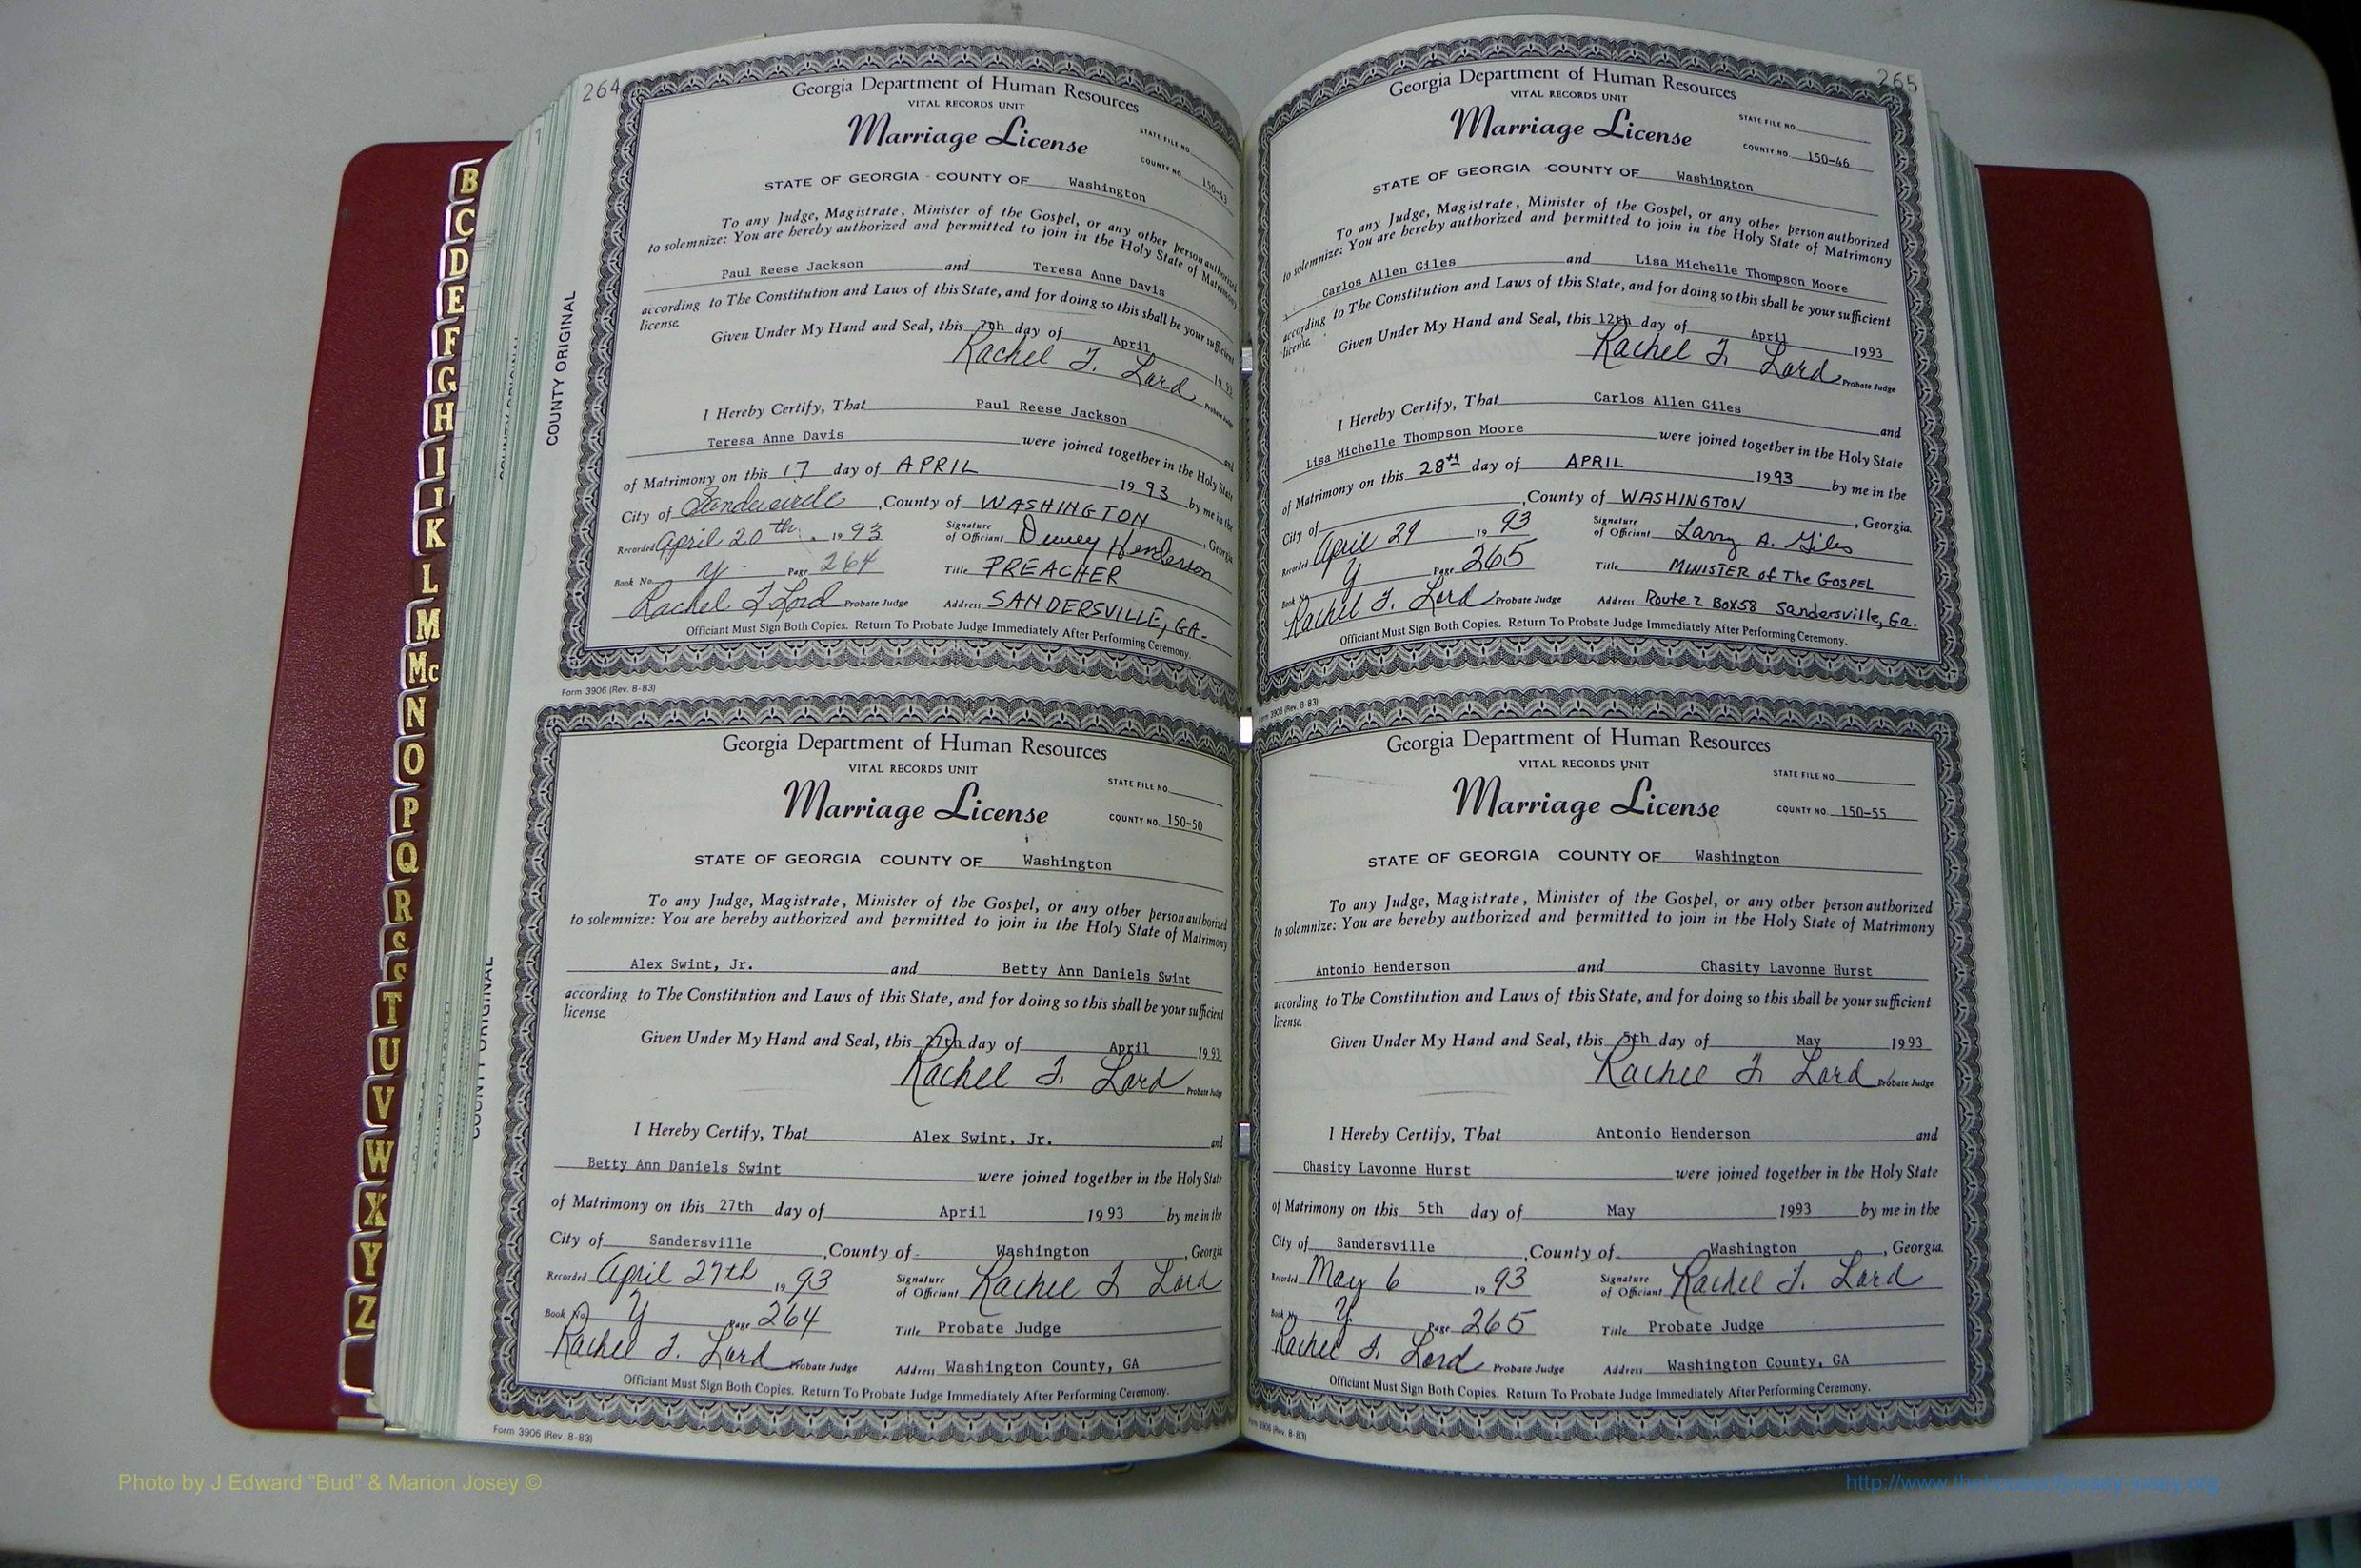 B
C
D
E
F
G
H
I
J
K
L
M
Mc
N
O
P
Q
R
S
S
T
U
V
W
X
Y
Z
264
COUNTY ORIGINAL
Georgia Department of Human Resources
VITAL RECORDS UNIT
Marriage License
STATE FILE NO.
COUNTY NO. 150-43
STATE OF GEORGIA - COUNTY OF Washington
To any Judge, Magistrate, Minister of the Gospel, or any other person authorized
to solemnize: You are hereby authorized and permitted to join in the Holy State of Matrimony
Paul Reese Jackson and Teresa Anne Davis
according to The Constitution and Laws of this State, and for doing so this shall be your sufficient
license.
Given Under My Hand and Seal, this 7th day of April 1993
Rachel T. Lord Probate Judge
I Hereby Certify, That Paul Reese Jackson and
Teresa Anne Davis were joined together in the Holy State
of Matrimony on this 17 day of APRIL 1993 by me in the
City of Sandersville, County of WASHINGTON, Georgia
Recorded April 20th, 1993 Signature of Officiant Dewey Henderson
Book No. Y Page 264 Title PREACHER
Rachel T Lord Probate Judge Address SANDERSVILLE, GA.
Officiant Must Sign Both Copies. Return To Probate Judge Immediately After Performing Ceremony.
Form 3906 (Rev. 8-83)
COUNTY ORIGINAL
Georgia Department of Human Resources
VITAL RECORDS UNIT
Marriage License
STATE FILE NO.
COUNTY NO. 150-50
STATE OF GEORGIA COUNTY OF Washington
To any Judge, Magistrate, Minister of the Gospel, or any other person authorized
to solemnize: You are hereby authorized and permitted to join in the Holy State of Matrimony
Alex Swint, Jr. and Betty Ann Daniels Swint
according to The Constitution and Laws of this State, and for doing so this shall be your sufficient
license.
Given Under My Hand and Seal, this 27th day of April 1993
Rachel T. Lord Probate Judge
I Hereby Certify, That Alex Swint, Jr. and
Betty Ann Daniels Swint were joined together in the Holy State
of Matrimony on this 27th day of April 1993 by me in the
City of Sandersville, County of Washington, Georgia
Recorded April 27th 1993 Signature of Officiant Rachel T Lord
Book No. Y Page 264 Title Probate Judge
Rachel T. Lord Probate Judge Address Washington County, GA
Officiant Must Sign Both Copies. Return To Probate Judge Immediately After Performing Ceremony.
Form 3906 (Rev. 8-83)
265
Georgia Department of Human Resources
VITAL RECORDS UNIT
Marriage License
STATE FILE NO.
COUNTY NO. 150-46
STATE OF GEORGIA COUNTY OF Washington
To any Judge, Magistrate, Minister of the Gospel, or any other person authorized
to solemnize: You are hereby authorized and permitted to join in the Holy State of Matrimony
Carlos Allen Giles and Lisa Michelle Thompson Moore
according to The Constitution and Laws of this State, and for doing so this shall be your sufficient
license.
Given Under My Hand and Seal, this 12th day of April 1993
Rachel T. Lord Probate Judge
I Hereby Certify, That Carlos Allen Giles and
Lisa Michelle Thompson Moore were joined together in the Holy State
of Matrimony on this 28th day of APRIL 1993 by me in the
City of , County of WASHINGTON, Georgia.
Recorded April 29 1993 Signature of Officiant Larry A. Giles
Book No. Y Page 265 Title MINISTER of The GOSPEL
Rachel T. Lord Probate Judge Address Route 2 Box 58 Sandersville, Ga.
Officiant Must Sign Both Copies. Return To Probate Judge Immediately After Performing Ceremony.
Form 3906 (Rev. 8-83)
Georgia Department of Human Resources
VITAL RECORDS UNIT
Marriage License
STATE FILE NO.
COUNTY NO. 150-55
STATE OF GEORGIA COUNTY OF Washington
To any Judge, Magistrate, Minister of the Gospel, or any other person authorized
to solemnize: You are hereby authorized and permitted to join in the Holy State of Matrimony
Antonio Henderson and Chasity Lavonne Hurst
according to The Constitution and Laws of this State, and for doing so this shall be your sufficient
license.
Given Under My Hand and Seal, this 5th day of May 1993
Rachel T. Lord Probate Judge
I Hereby Certify, That Antonio Henderson and
Chasity Lavonne Hurst were joined together in the Holy State
of Matrimony on this 5th day of May 1993 by me in the
City of Sandersville, County of Washington, Georgia.
Recorded May 6 1993 Signature of Officiant Rachel T. Lord
Book No. Y Page 265 Title Probate Judge
Rachel T. Lord Probate Judge Address Washington County, GA
Officiant Must Sign Both Copies. Return To Probate Judge Immediately After Performing Ceremony.
Form 3906 (Rev. 8-83)
Photo by J Edward "Bud" & Marion Josey ©